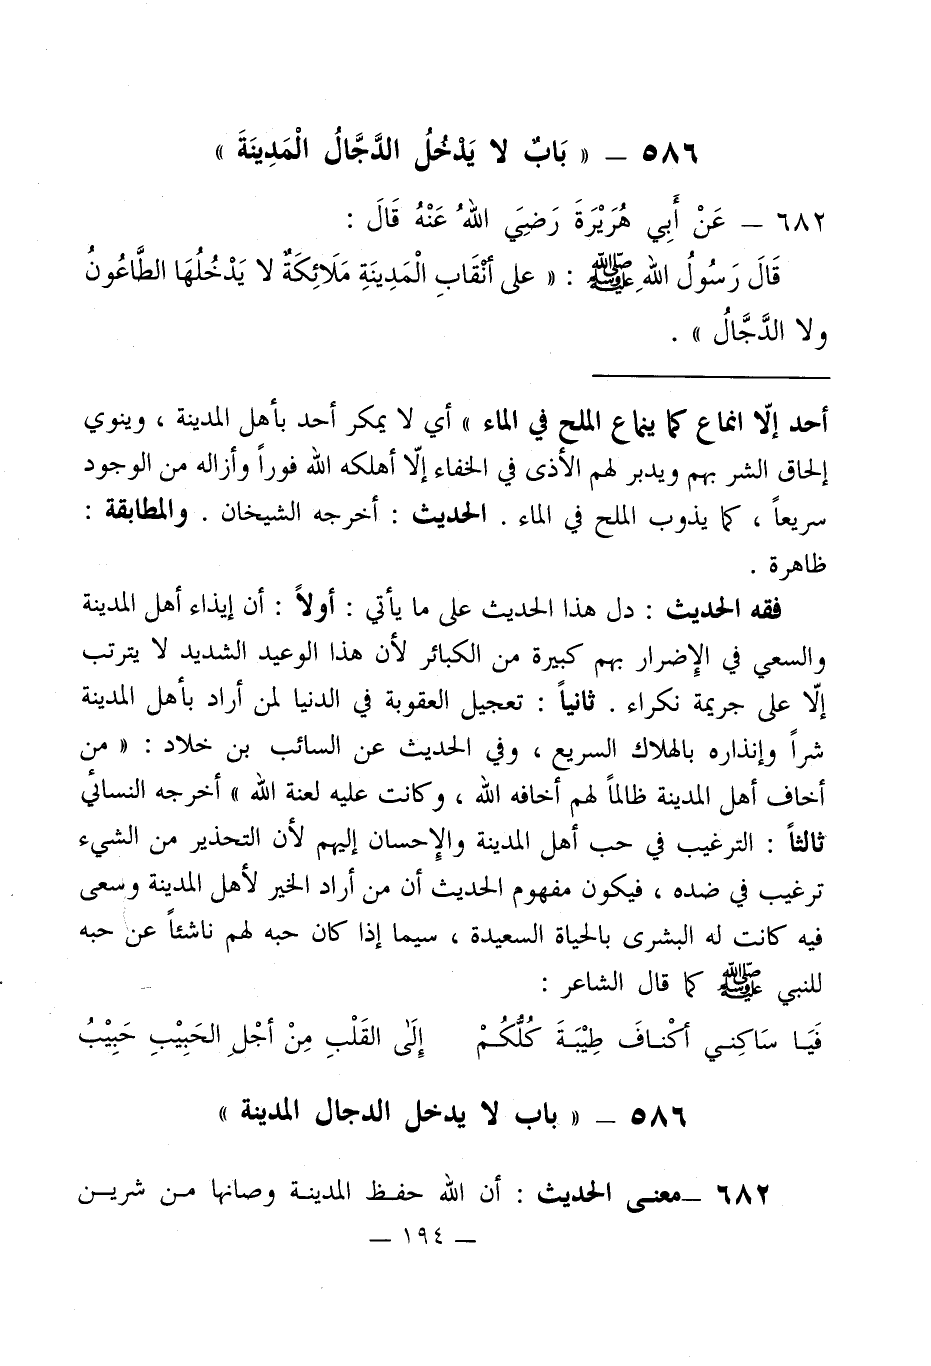 ٥٨٦ – « بَابٌ لا يَدْخُلُ الدَّجَّالُ الْمَدِينَةَ »
٦٨٢ – عَنْ أَبِي هُرَيْرَةَ رَضِيَ اللهُ عَنْهُ قَالَ :
قَالَ رَسُولُ اللهِ ﷺ : « على أنْقَابِ الْمَدِينَةِ مَلَائِكَةٌ لا يَدْخُلُهَا الطَّاعُونُ
ولا الدَّجَّالُ » .
أحد إلّا انماع كما ينماع الملح في الماء » أي لا يمكر أحد بأهل المدينة ، وينوي
إلحاق الشر بهم ويدبر لهم الأذى في الخفاء إلّا أهلكه الله فوراً وأزاله من الوجود
سريعاً ، كما يذوب الملح في الماء . الحديث : أخرجه الشيخان . والمطابقة :
ظاهرة .
فقه الحديث : دل هذا الحديث على ما يأتي : أولاً : أن إيذاء أهل المدينة
والسعي في الإضرار بهم كبيرة من الكبائر لأن هذا الوعيد الشديد لا يترتب
إلّا على جريمة نكراء . ثانياً : تعجيل العقوبة في الدنيا لمن أراد بأهل المدينة
شراً وإنذاره بالهلاك السريع ، وفي الحديث عن السائب بن خلاد : « من
أخاف أهل المدينة ظالماً لهم أخافه الله ، وكانت عليه لعنة الله » أخرجه النسائي
ثالثاً : الترغيب في حب أهل المدينة والإحسان إليهم لأن التحذير من الشيء
ترغيب في ضده ، فيكون مفهوم الحديث أن من أراد الخير لأهل المدينة وسعى
فيه كانت له البشرى بالحياة السعيدة ، سيما إذا كان حبه لهم ناشئاً عن حبه
للنبي ﷺ كما قال الشاعر :
فَيَا سَاكِنِي أكْنافَ طِيْبَةَ كُلُّكُمْ إِلَى القَلْبِ مِنْ أجْلِ الحَبِيْبِ حَبِيْبُ
٥٨٦ – « باب لا يدخل الدجال المدينة »
٦٨٢ – معنى الحديث : أن الله حفظ المدينة وصانها من شرين
– ١٩٤ –